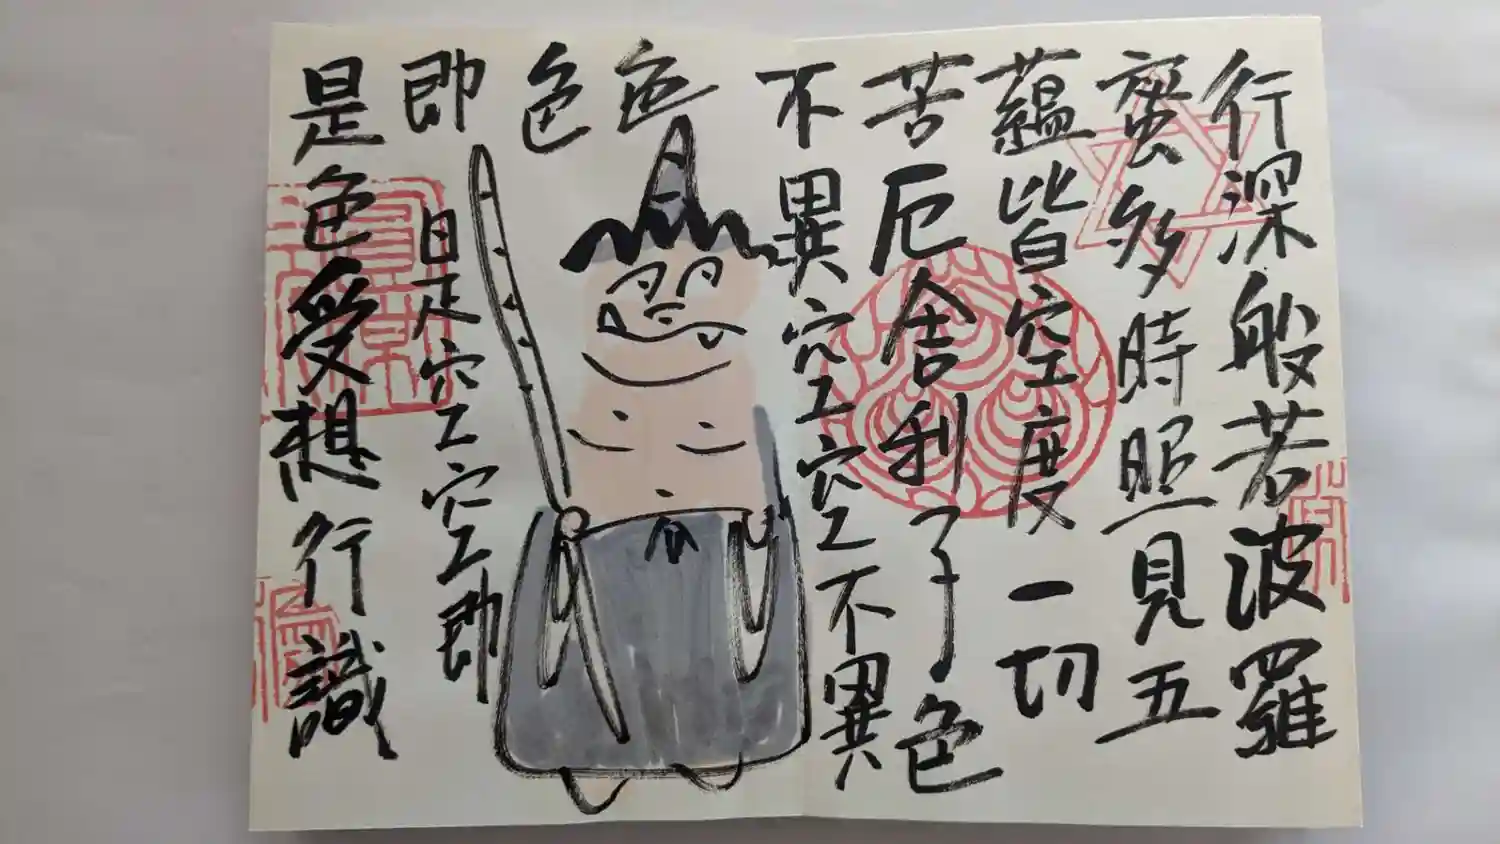 行深般若波羅
蜜多時照見五
蘊皆空度一切
苦厄舍利子色
不異空空不異
色
色
即是空空即
是色受想行識